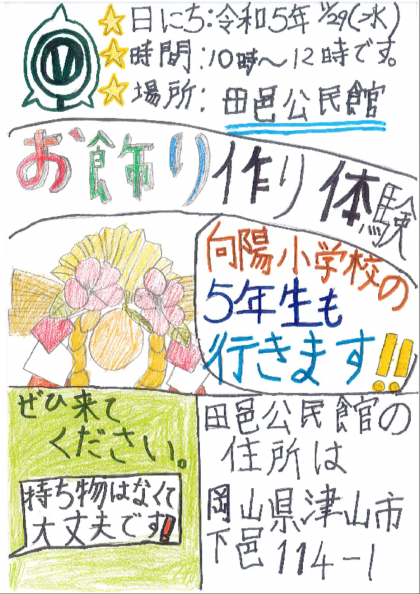 ☆日にち:令和5年11/29(水)
☆時間:10時～12時です。
☆場所:田邑公民館
お飾り作り体験
向陽小学校の
5年生も
行きます!!
ぜひ来て
ください。
持ち物はなくて
大丈夫です!!
田邑公民館の
住所は
岡山県津山市
下邑114-1